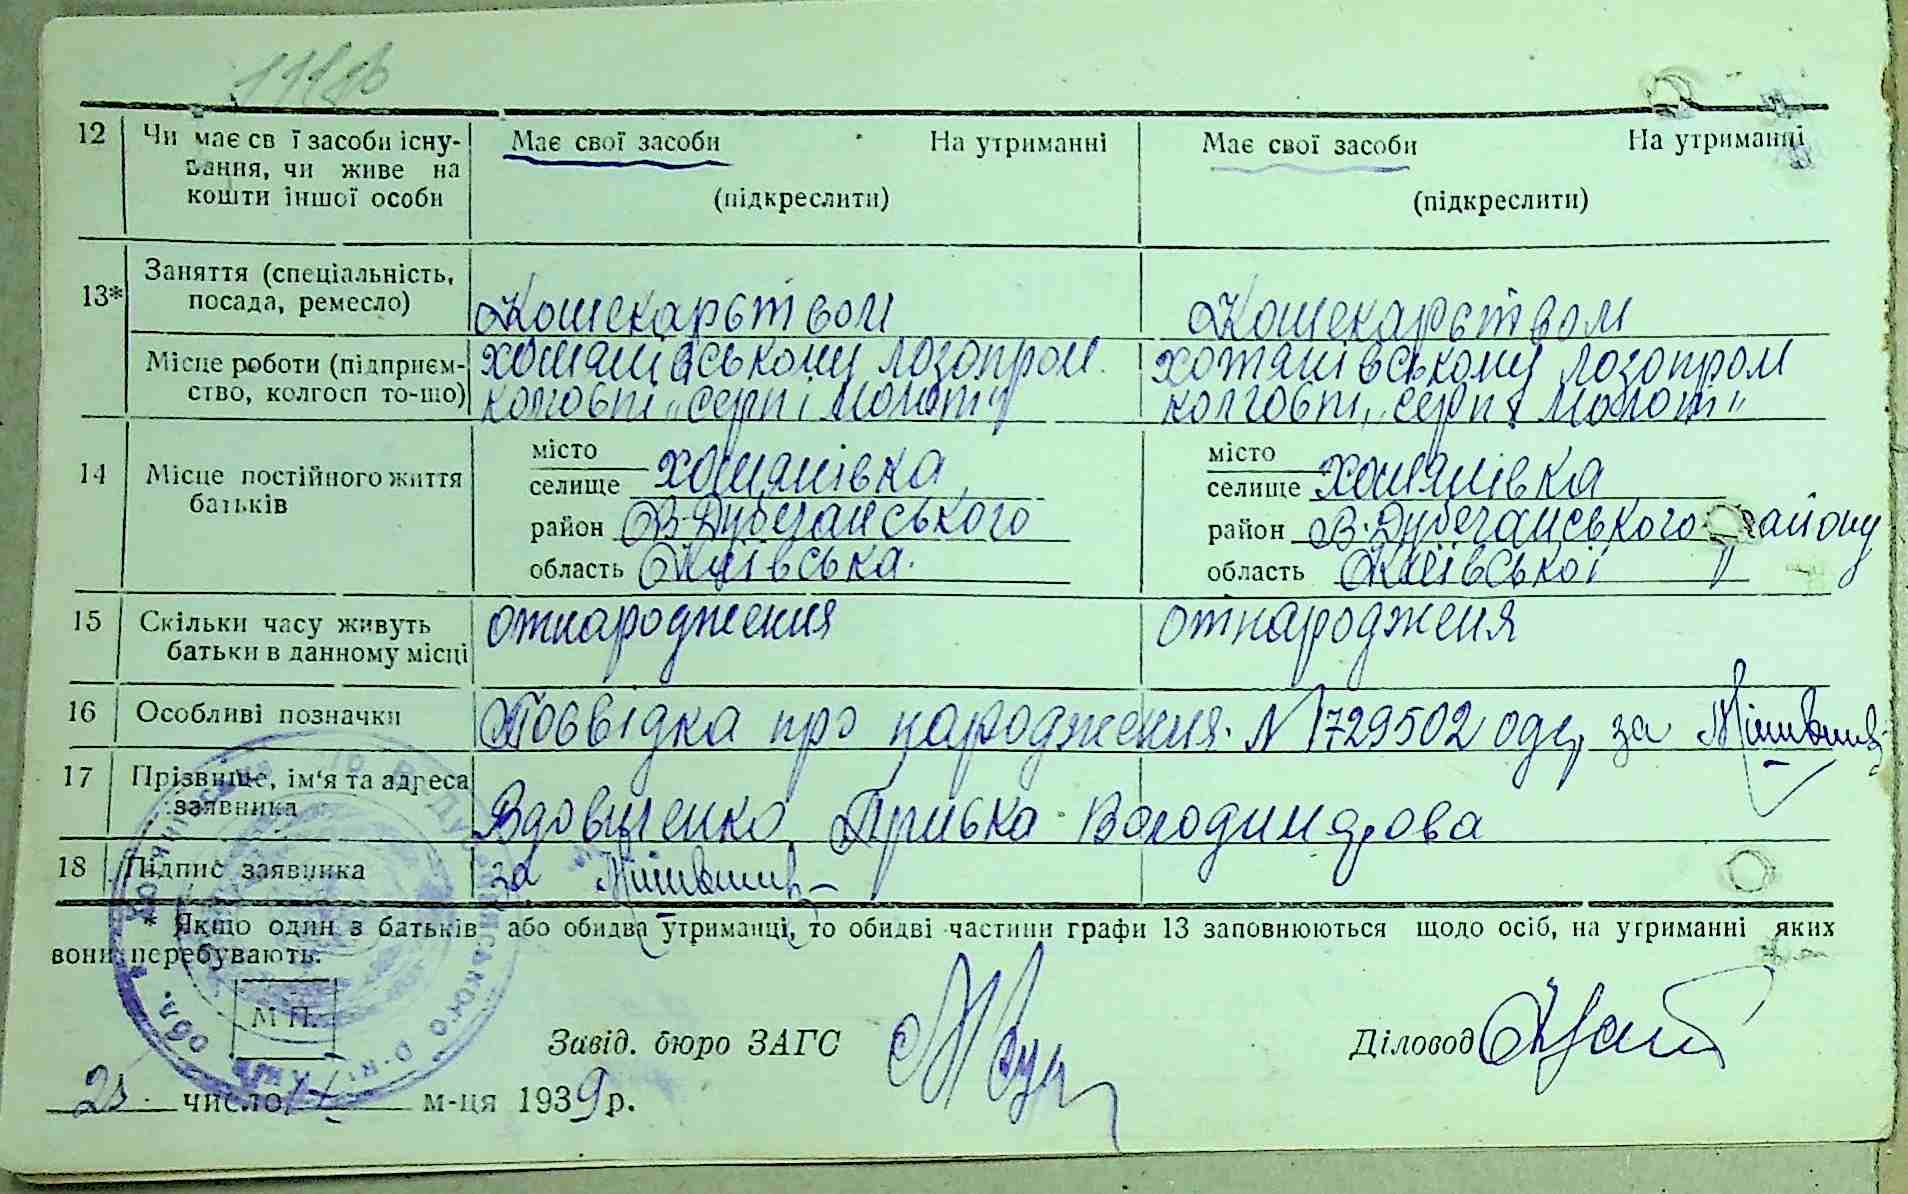 12 Чи має св ї засоби існу- Має свої засоби На утриманні Має свої засоби На утриманні
вання, чи живе на
кошти іншої особи (підкреслити) (підкреслити)
13* Заняття (спеціальність,
посада, ремесло) Кошекарством Кошекарством
Місце роботи (підприєм- хотянівському лозопром. хотянівському лозопром
ство, колгосп то-що) колговпі „серп і молот" колговпі, „серп і молот"
14 Місце постійного життя
батьків
місто
селище хотянівка
район В-Дубечанського
область Київська.
місто
селище хотянівка
район В-Дубечанського району
область Київської
15 Скільки часу живуть
батьки в данному місці отнародження отнародженя
16 Особливі позначки Посвідка про народження. N 1729502 одер за
17 Прізвище, ім'я та адреса
заявника Вдовиченко Приська Володимирова
18 Підпис заявника за
* Якщо один з батьків або обидва утриманці, то обидві частини графи 13 заповнюються щодо осіб, на утриманні яких
вони перебувають.
М П.
Завід. бюро ЗАГС Діловод
число м-ця 1939 р.